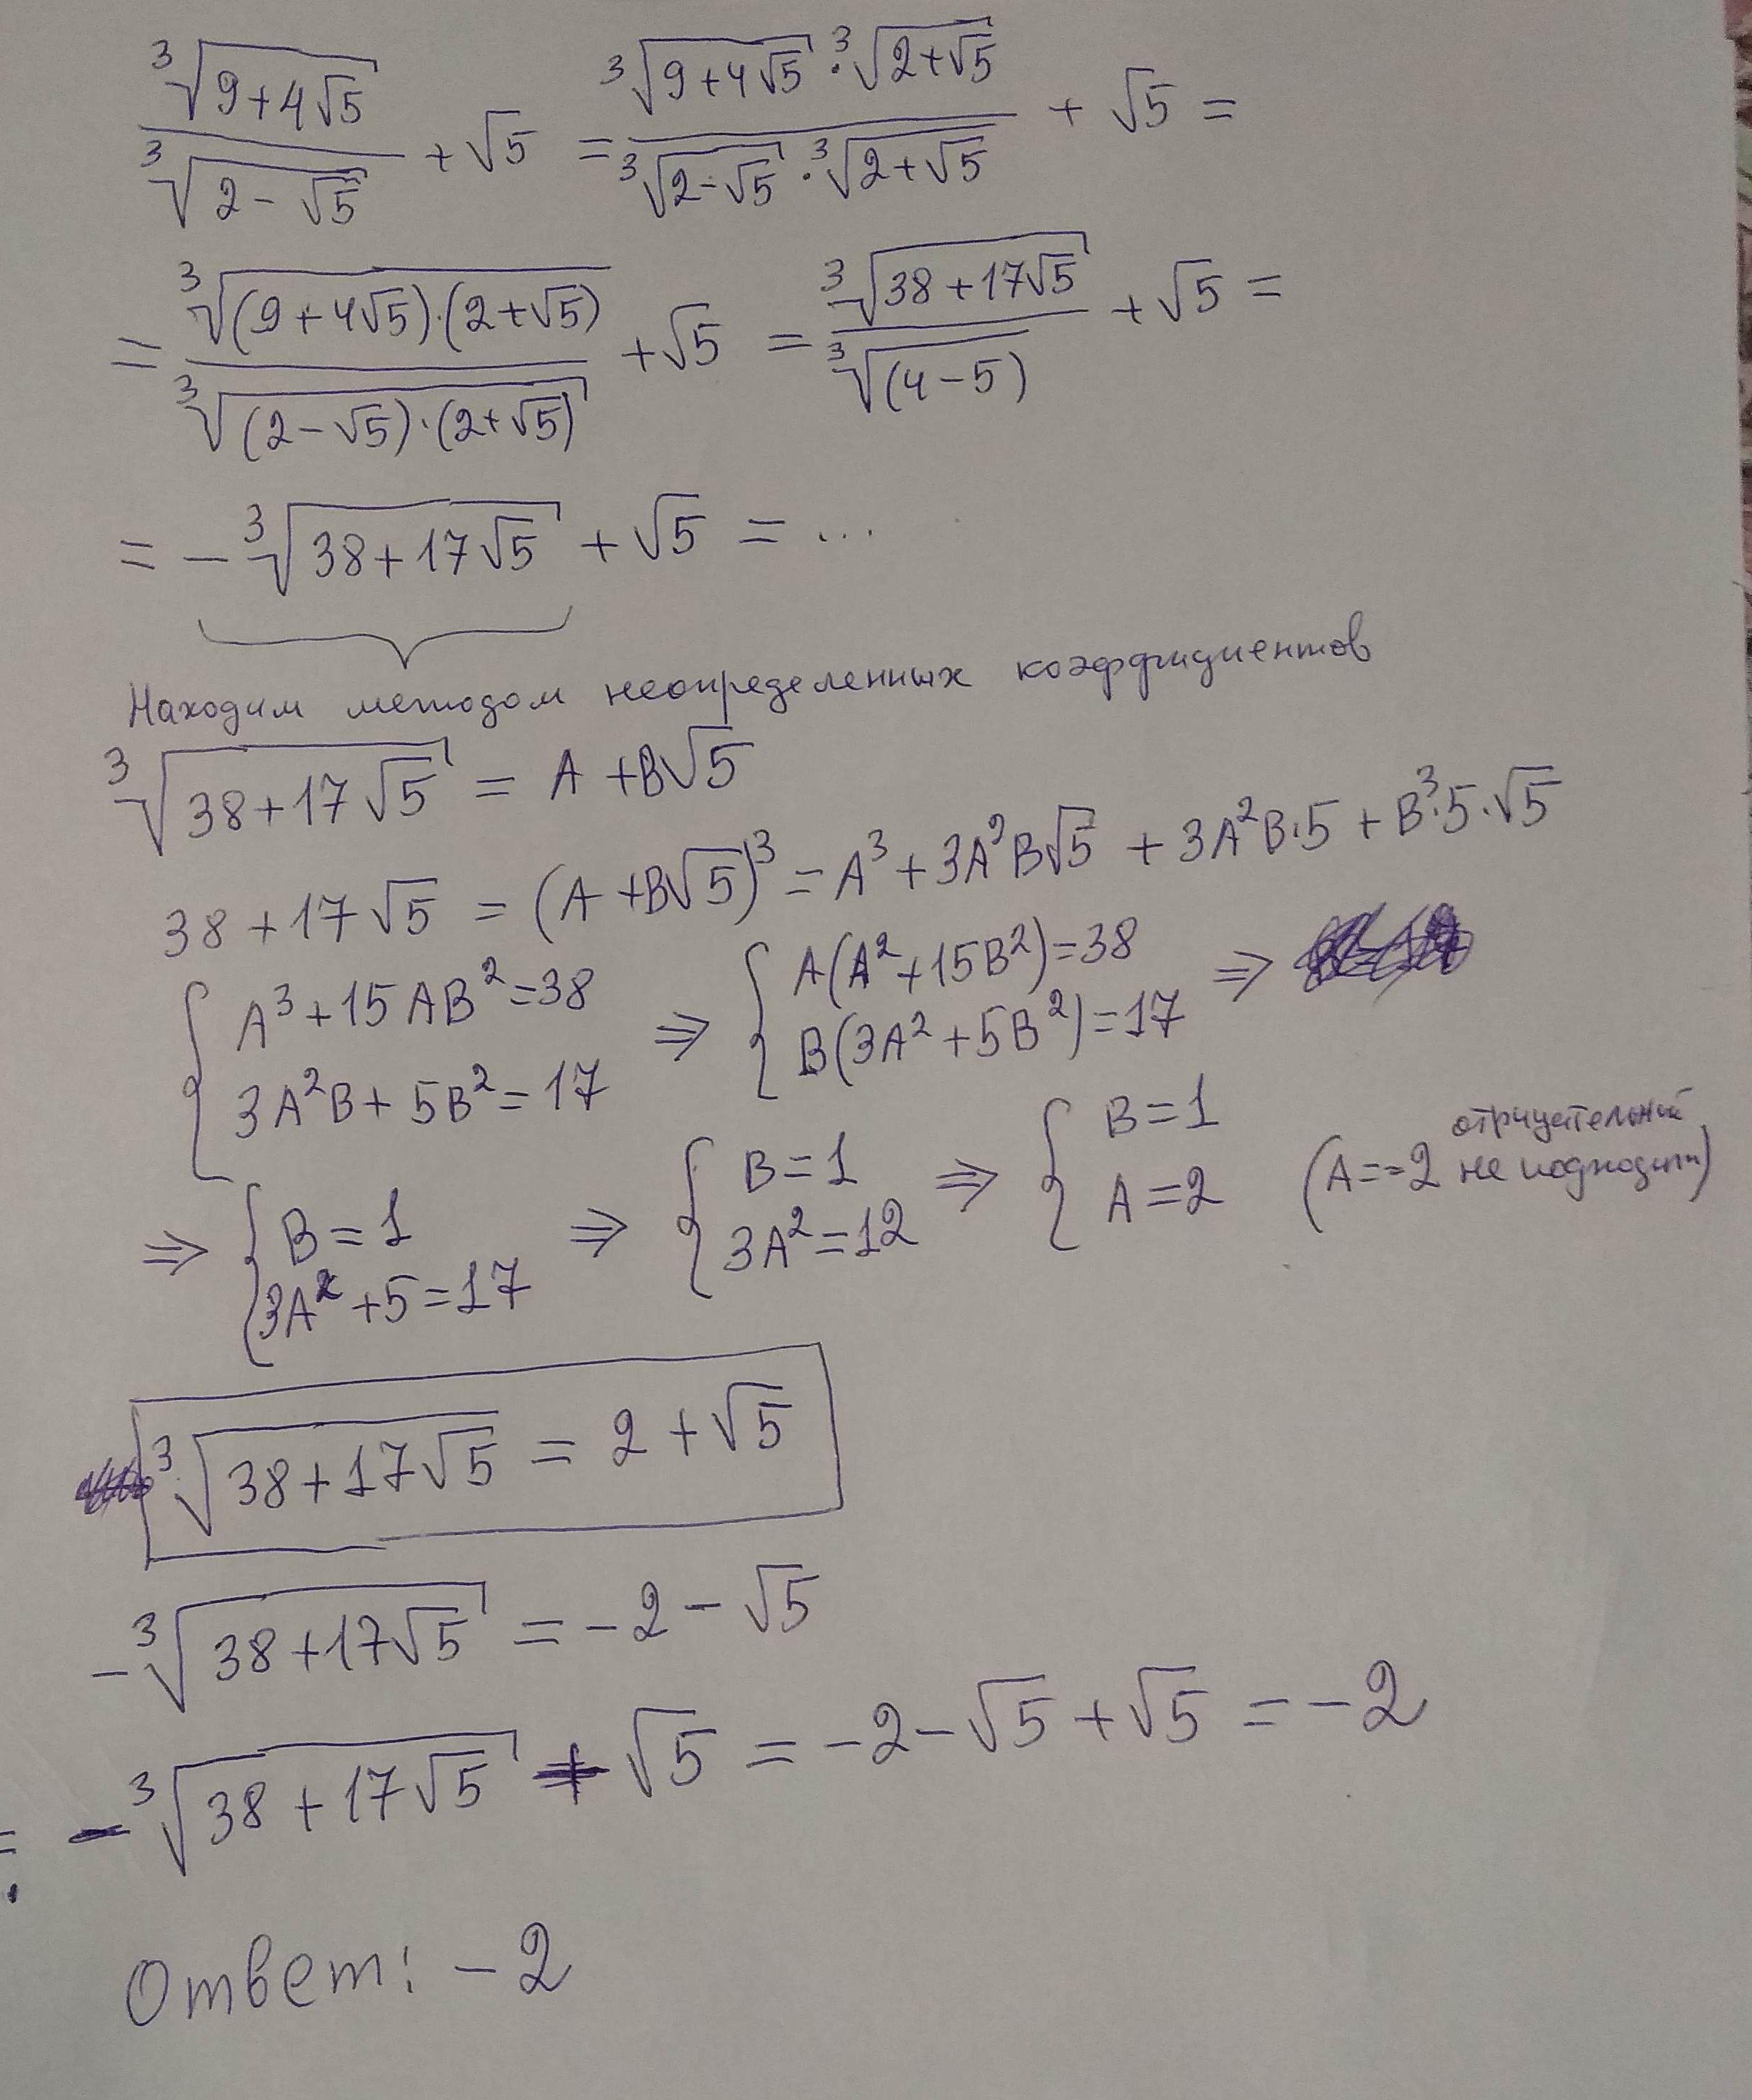 ∛(9+4√5) / ∛(2-√5) + √5 = ∛(9+4√5) · ∛(2+√5) / ∛(2-√5) · ∛(2+√5) + √5 =
= ∛((9+4√5)·(2+√5)) / ∛((2-√5)·(2+√5)) + √5 = ∛(38+17√5) / ∛(4-5) + √5 =
= -∛(38+17√5) + √5 = ...
Находим методом неопределенных коэффициентов
∛(38+17√5) = A + B√5
38+17√5 = (A+B√5)³ = A³ + 3A²B√5 + 3A²B·5 + B³·5·√5
{ A³+15AB²=38 ; 3A²B+5B²=17 ⇒ { A(A²+15B²)=38 ; B(3A²+5B²)=17 ⇒
⇒ { B=1 ; 3A²+5=17 ⇒ { B=1 ; 3A²=12 ⇒ { B=1 ; A=2 (A=-2 отрицательный не подходит)
∛(38+17√5) = 2+√5
-∛(38+17√5) = -2-√5
= -∛(38+17√5) + √5 = -2-√5+√5 = -2
Ответ: -2